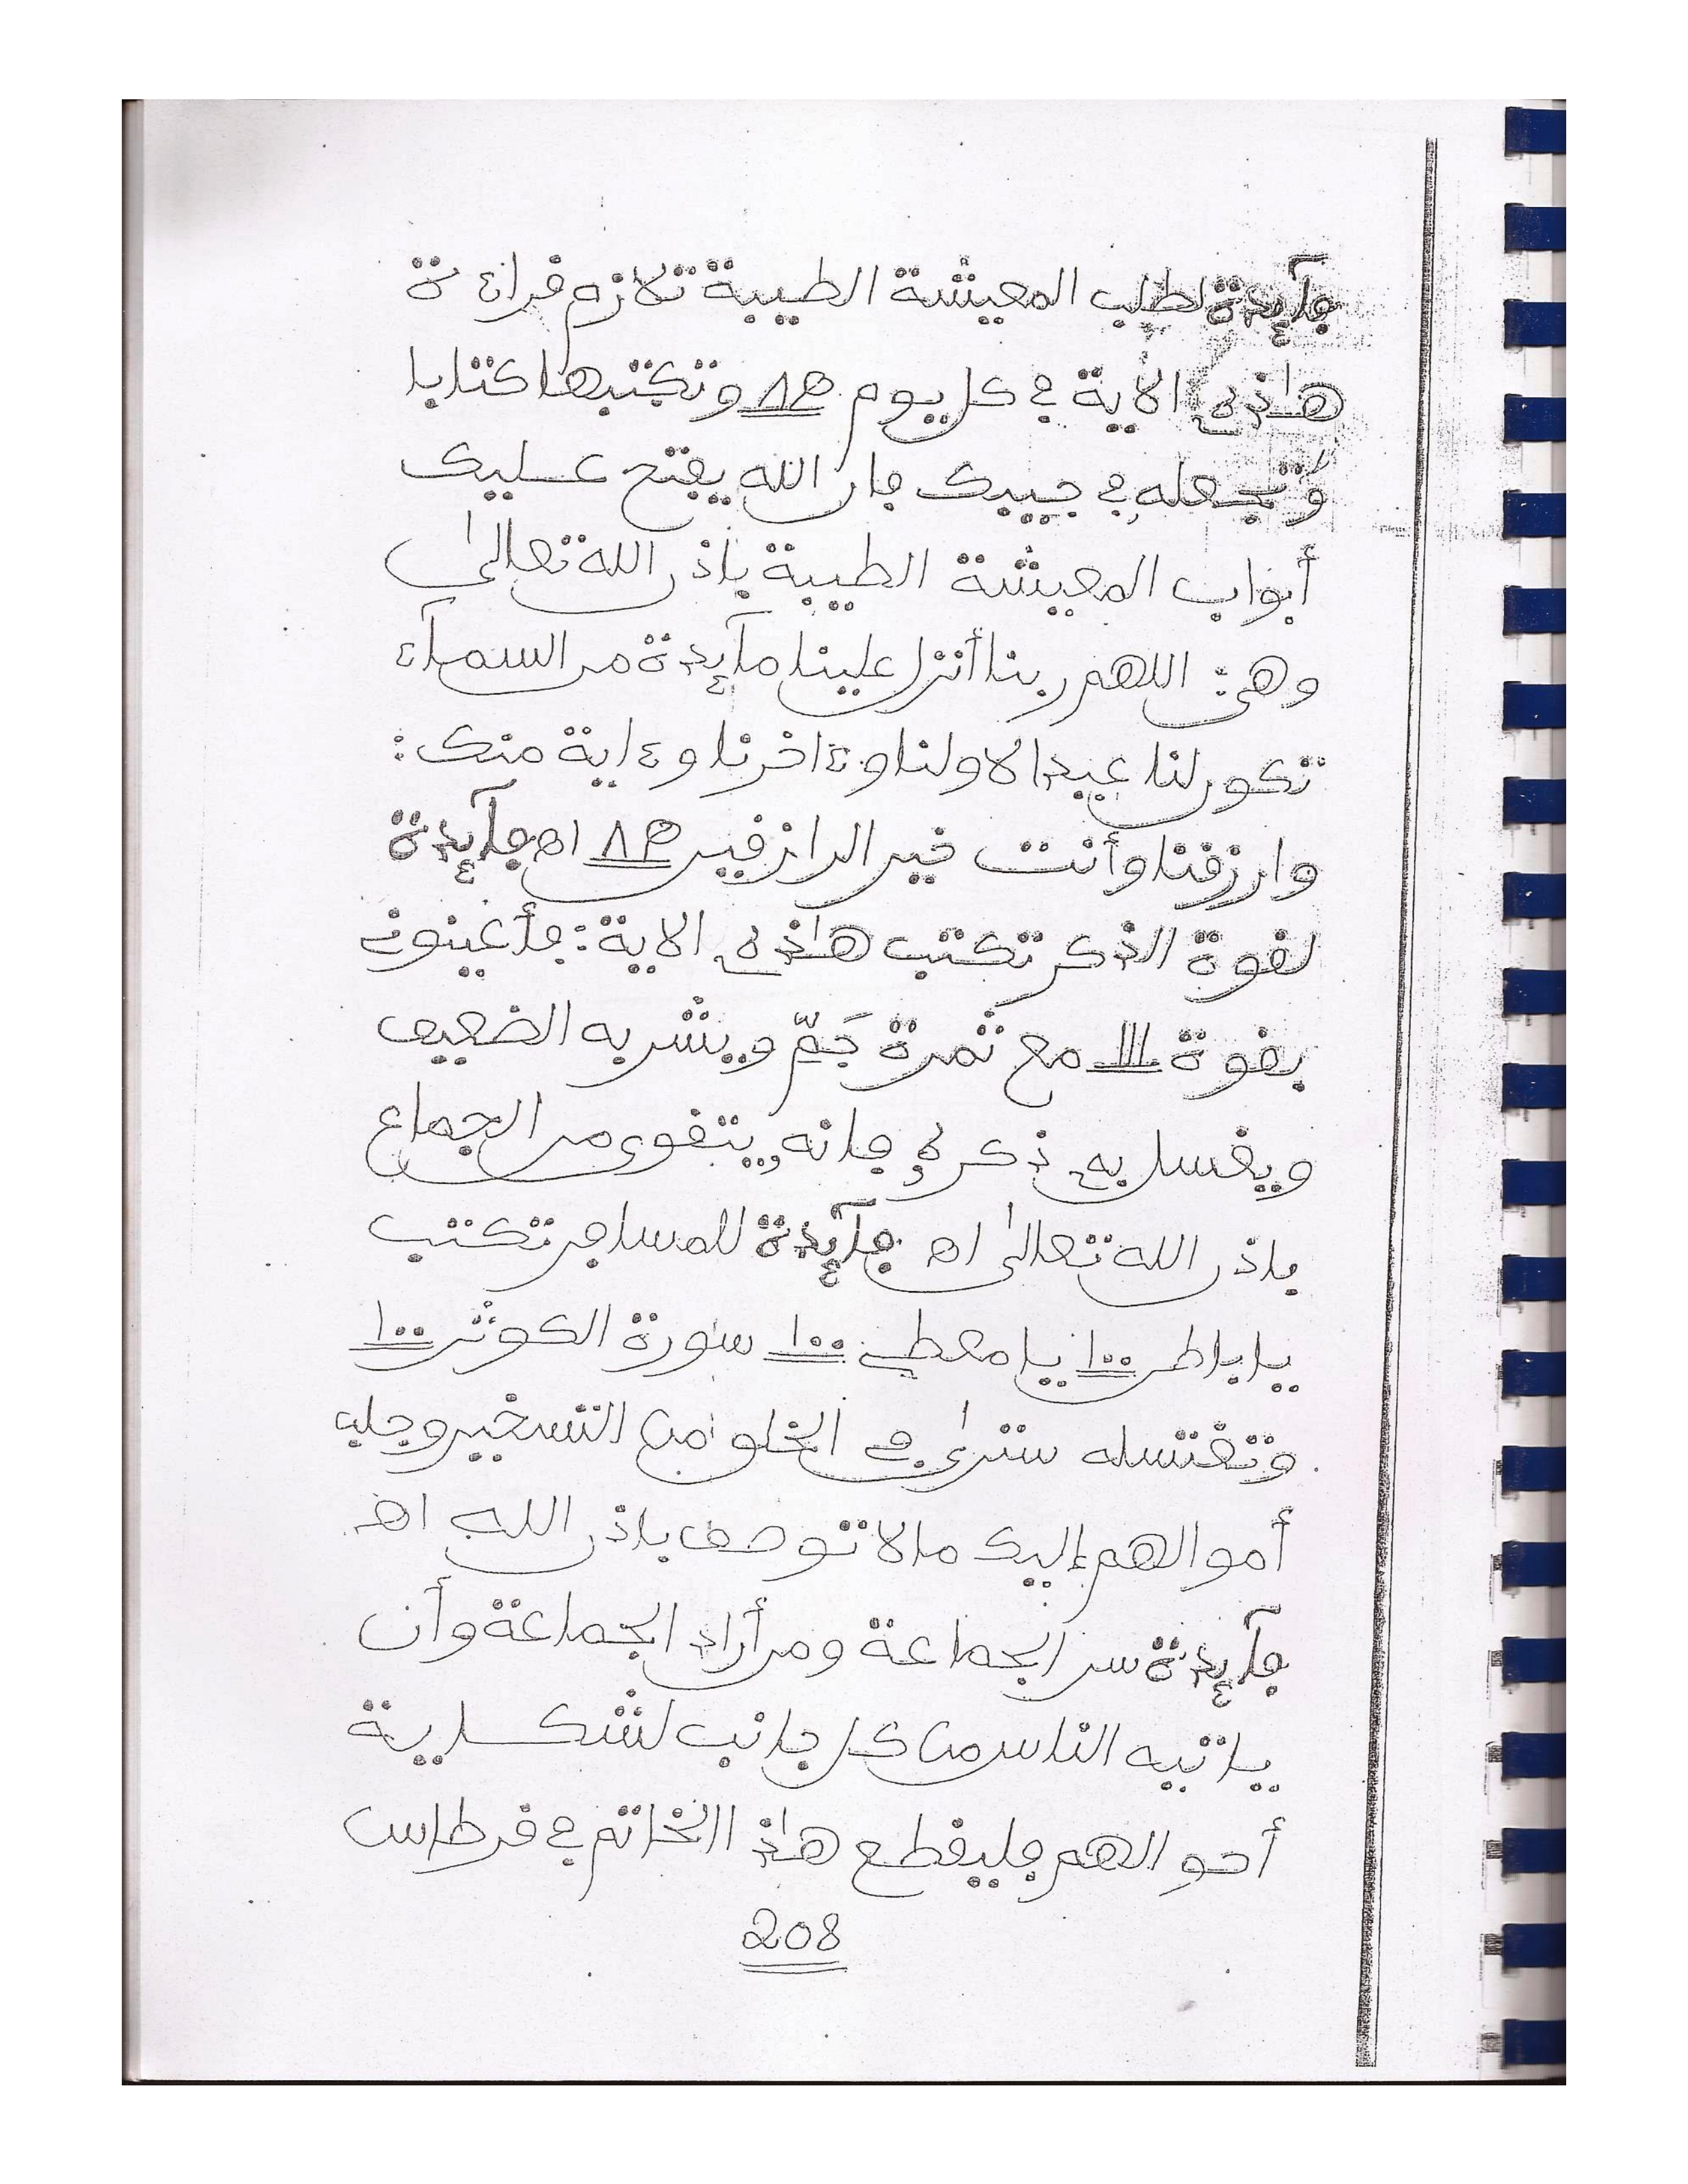 فآئدة لطلب المعيشة الطيبة تلازم قراءة
هاذه الاية في كل يوم ١٨ وتكتبها كتابا
وتجعله في جيبك فان الله يفتح عليك
أبواب المعيشة الطيبة باذن الله تعالى
وهي: اللهم ربنا أنزل علينا مآئدة من السمآء
تكون لنا عيدا لاولنا وءاخرنا وءاية منك:
وارزقنا وأنت خير الرازقين اه فآئدة
لقوة الذكر تكتب هاذه الاية: فأعينوني
بقوة ١١١ مع ثمرة جَمّ ويشربه الضعيف
ويغسل به ذكره فانه يتقوى من الجماع
باذن الله تعالى اه فآئدة للمسافر تكتب
يا باطن ١٠٠ يا معطي ١٠٠ سورة الكوثر ١٠٠
وتغتسله سترى في الخلق من التسخير وجلب
أموالهم إليك ما لا توصف باذن الله اه
فآئدة سر الجماعة ومن أراد الجماعة وأن
ياتيه الناس من كل جانب لشكاية
أحوالهم فليقطع هاذا الخاتم في قرطاس
208